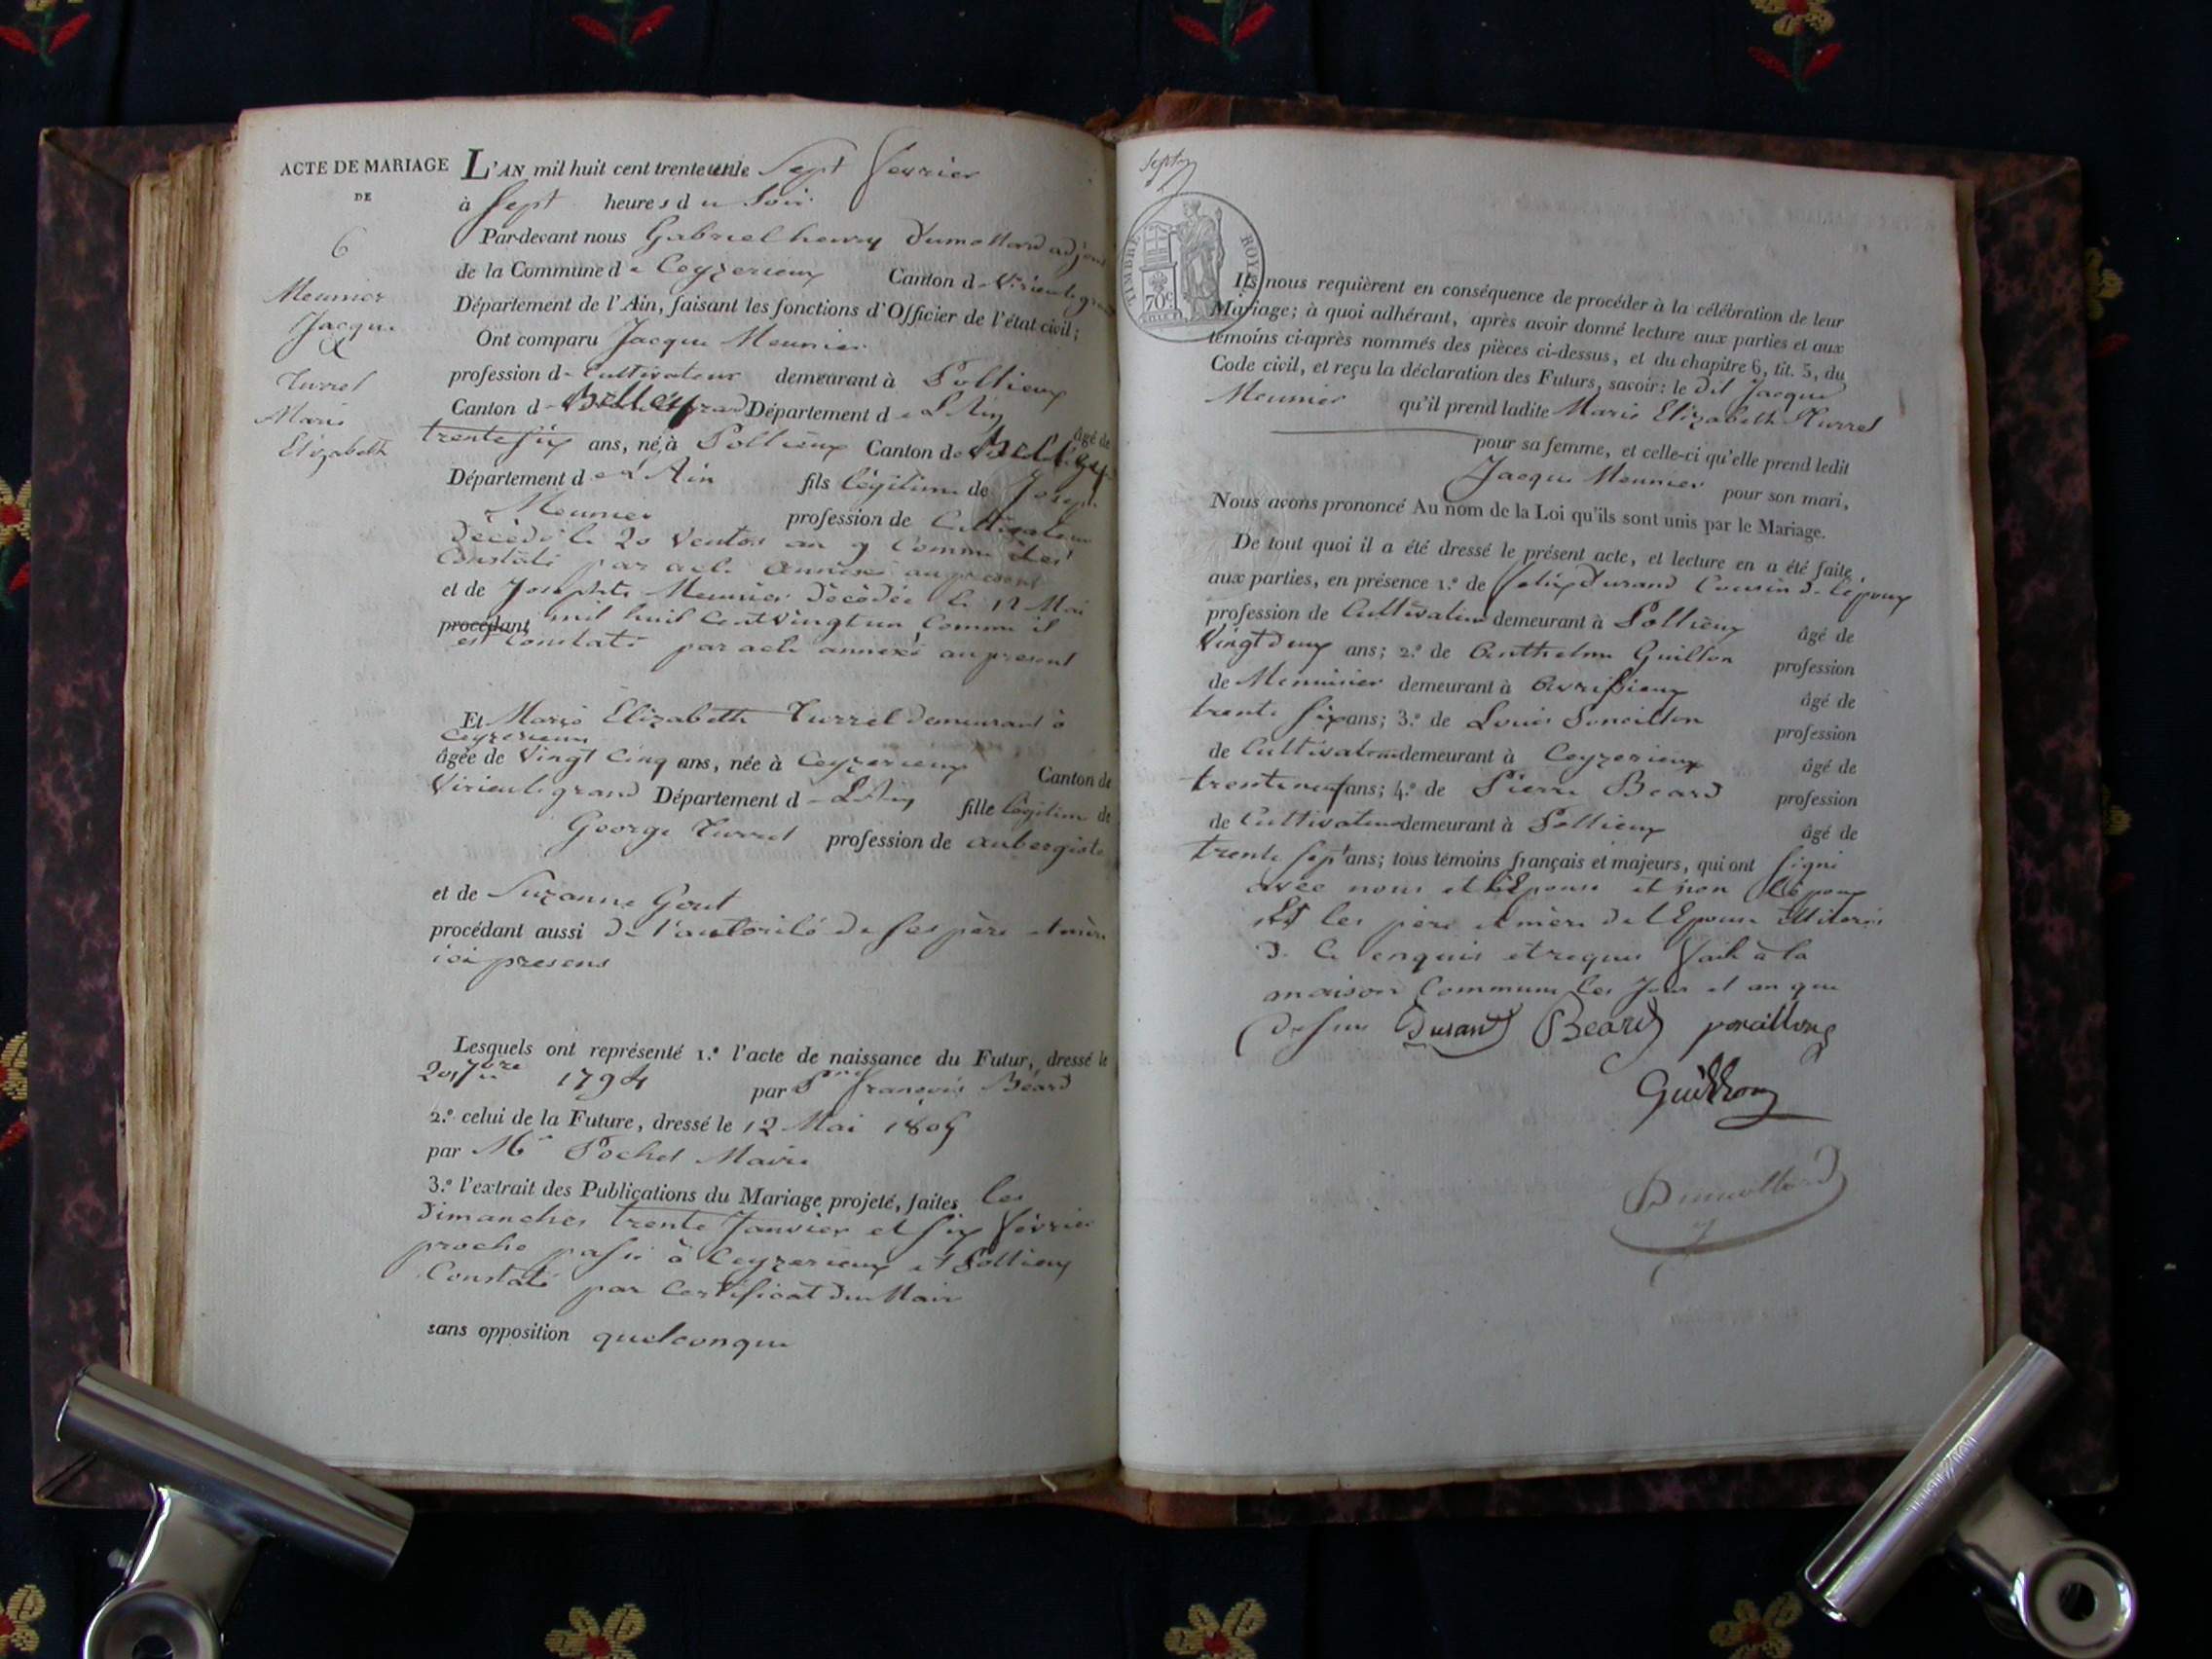 ACTE DE MARIAGE
DE
6
Meunier
Jacque
&
Turrel
Marie
Elizabeth
L'AN mil huit cent trente un le Sept fevrier
à Sept heures du Soir
Par-devant nous Gabriel henry Dumollard adjoint
de la Commune de Ceyzerieux Canton de Virieu le grand
Département de l'Ain, faisant les fonctions d'Officier de l'état civil;
Ont comparu Jacque Meunier
profession de Cultivateur demeurant à Pollieux
Canton de Belley Département de L'Ain
âgé de
trente six ans, né à Pollieux Canton de Belley
Département de l'Ain fils légitime de Joseph
Meunier profession de Cultivateur
décédé le 20 Ventos an 9 Comme il est
Constaté par acte annexé au present
et de Josephte Meunier décédée le 12 Mai
procédant mil huit Cent vingt un Comme il
est Constaté par acte annexé au present
Et Marie Elizabeth Turrel demeurant à
Ceyzerieux
âgée de Vingt Cinq ans, née à Ceyzerieux Canton de
Virieu le grand Département de L'Ain fille légitime de
George Turrel profession de aubergiste
et de Suzanne Gout
procédant aussi de l'autorité de ses père et mère
ici presens
Lesquels ont représenté 1.º l'acte de naissance du Futur, dressé le
20 7bre 1794 par françois Béard
2.º celui de la Future, dressé le 12 Mai 1805
par Mr Pochet Maire
3.º l'extrait des Publications du Mariage projeté, faites les
dimanches trente Janvier et six février
proche passé à Ceyzerieux et Pollieux
Constaté par Certificat du Maire
sans opposition quelconque
Septe
TIMBRE ROYAL
70c
Ils nous requièrent en conséquence de procéder à la célébration de leur
Mariage; à quoi adhérant, après avoir donné lecture aux parties et aux
témoins ci-après nommés des pièces ci-dessus, et du chapitre 6, tit. 5, du
Code civil, et reçu la déclaration des Futurs, savoir: le dit Jacque
Meunier qu'il prend ladite Marie Elizabeth Turrel
pour sa femme, et celle-ci qu'elle prend ledit
Jacque Meunier pour son mari,
Nous avons prononcé Au nom de la Loi qu'ils sont unis par le Mariage.
De tout quoi il a été dressé le présent acte, et lecture en a été faite
aux parties, en présence 1.º de felix Durand Cousin de l'époux
profession de Cultivateur demeurant à Pollieux âgé de
Vingt deux ans; 2.º de Anthelme Guillon profession
de Menuisier demeurant à Avrissieux âgé de
trente six ans; 3.º de Louis Poncillon profession
de Cultivateur demeurant à Ceyzerieux âgé de
trente neuf ans; 4.º de Pierre Beard profession
de Cultivateur demeurant à Pollieux âgé de
trente sept ans; tous témoins français et majeurs, qui ont signé
avec nous et l'Epouse et non l'époux
Et les père et mère de l'Epouse illiteris
de ce enquis et requis fait à la
maison Commune les Jour et an que
dessus Durand Beard poncillong
Guilliong
Dumollard